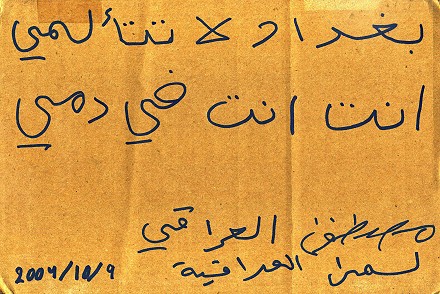 بغداد لا تتألمي
انت انت في دمي
مصطفى العراقي
لسمرا العراقية
2004/10/9